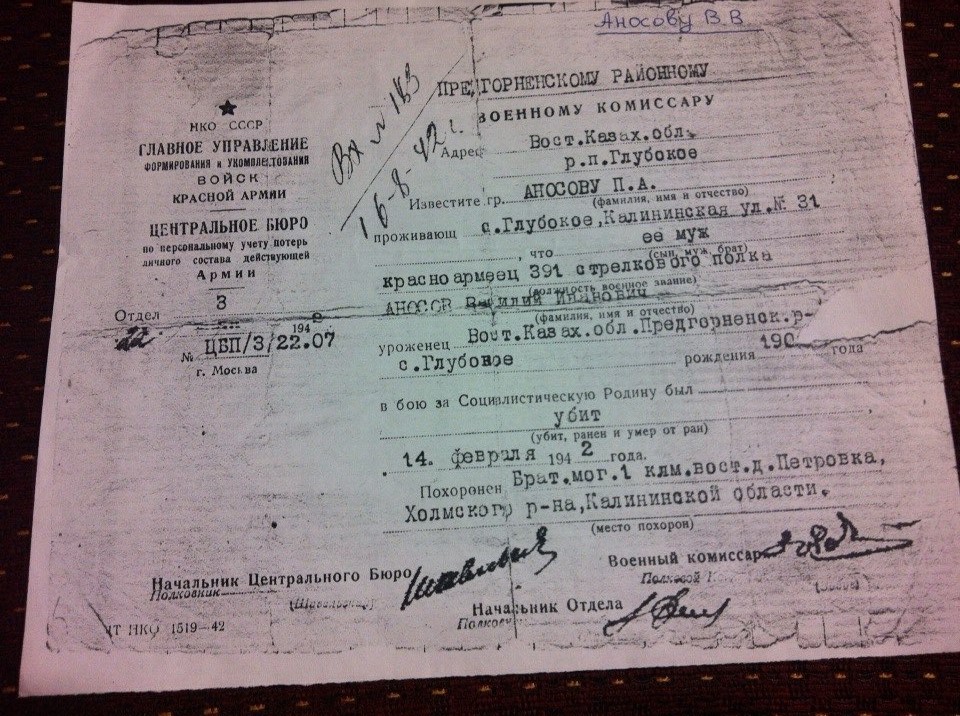 Аносову В В
НКО СССР
ГЛАВНОЕ УПРАВЛЕНИЕ
ФОРМИРОВАНИЯ и УКОМПЛЕКТОВАНИЯ
ВОЙСК
КРАСНОЙ АРМИИ
ЦЕНТРАЛЬНОЕ БЮРО
по персональному учету потерь
личного состава действующей
Армии
Отдел 3
22 194
№ ЦБП/3/22.07
г. Москва
Вх № 183
16-8-42 г.
ПРЕДГОРНЕНСКОМУ РАЙОННОМУ
ВОЕННОМУ КОМИССАРУ
Адрес Вост.Казах.обл.
р.п.Глубокое
Известите гр. АНОСОВУ П.А.
(фамилия, имя и отчество)
проживающ с.Глубокое,Калининская ул.№ 31
, что ее муж
(сын, муж, брат)
красноармеец 391 стрелкового полка
(должность военное звание)
АНОСОВ Василий Иванович
(фамилия, имя и отчество)
уроженец Вост.Казах.обл.Предгорненск.р-
с.Глубокое рождения 190 года
в бою за Социалистическую Родину был
убит
(убит, ранен и умер от ран)
14. февраля 1942 года.
Похоронен Брат.мог.1 клм.вост.д.Петровка,
Холмского р-на,Калининской области.
(место похорон)
Начальник Центрального Бюро
Полковник
Военный комиссар
Полковой
Начальник Отдела
НКО 1519—42